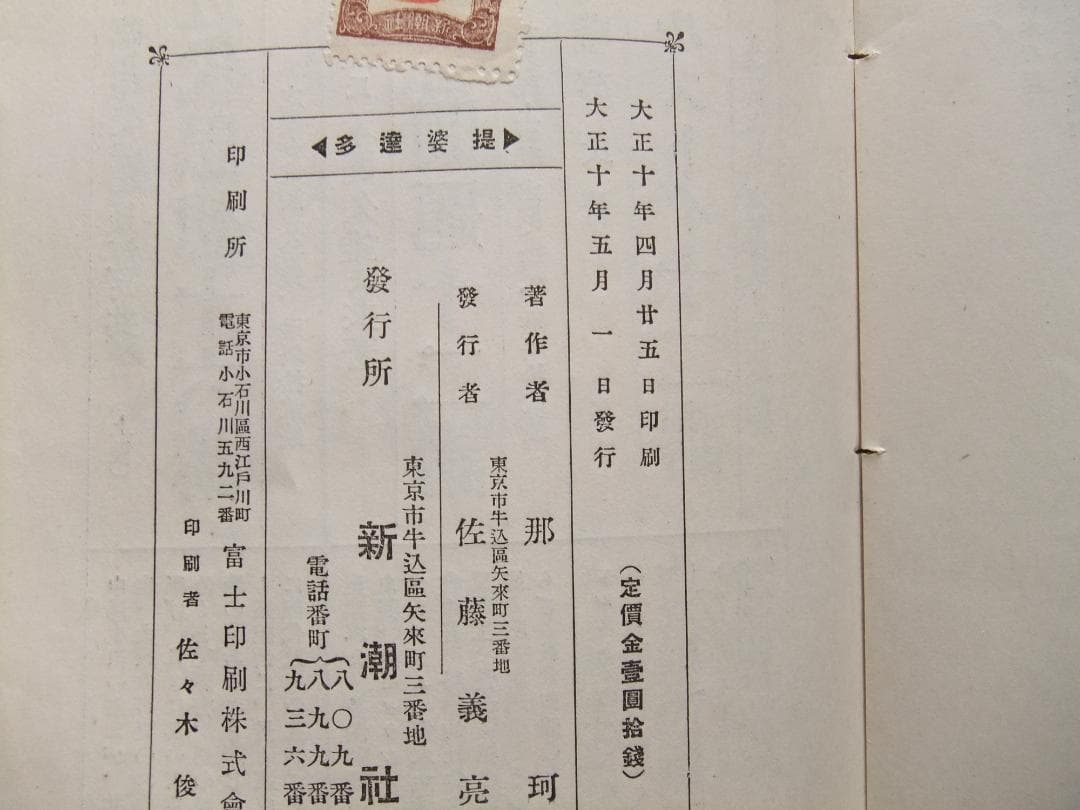 大正十年四月廿五日印刷
大正十年五月一日發行
(定價金壹圓拾錢)
提婆達多
著作者 那珂
東京市牛込區矢來町三番地
發行者 佐藤義亮
東京市牛込區矢來町三番地
發行所 新潮社
電話番町
八〇九番
八九九番
九三六番
東京市小石川區西江戸川町
電話小石川五九二番
印刷所 富士印刷株式會
印刷者 佐々木俊